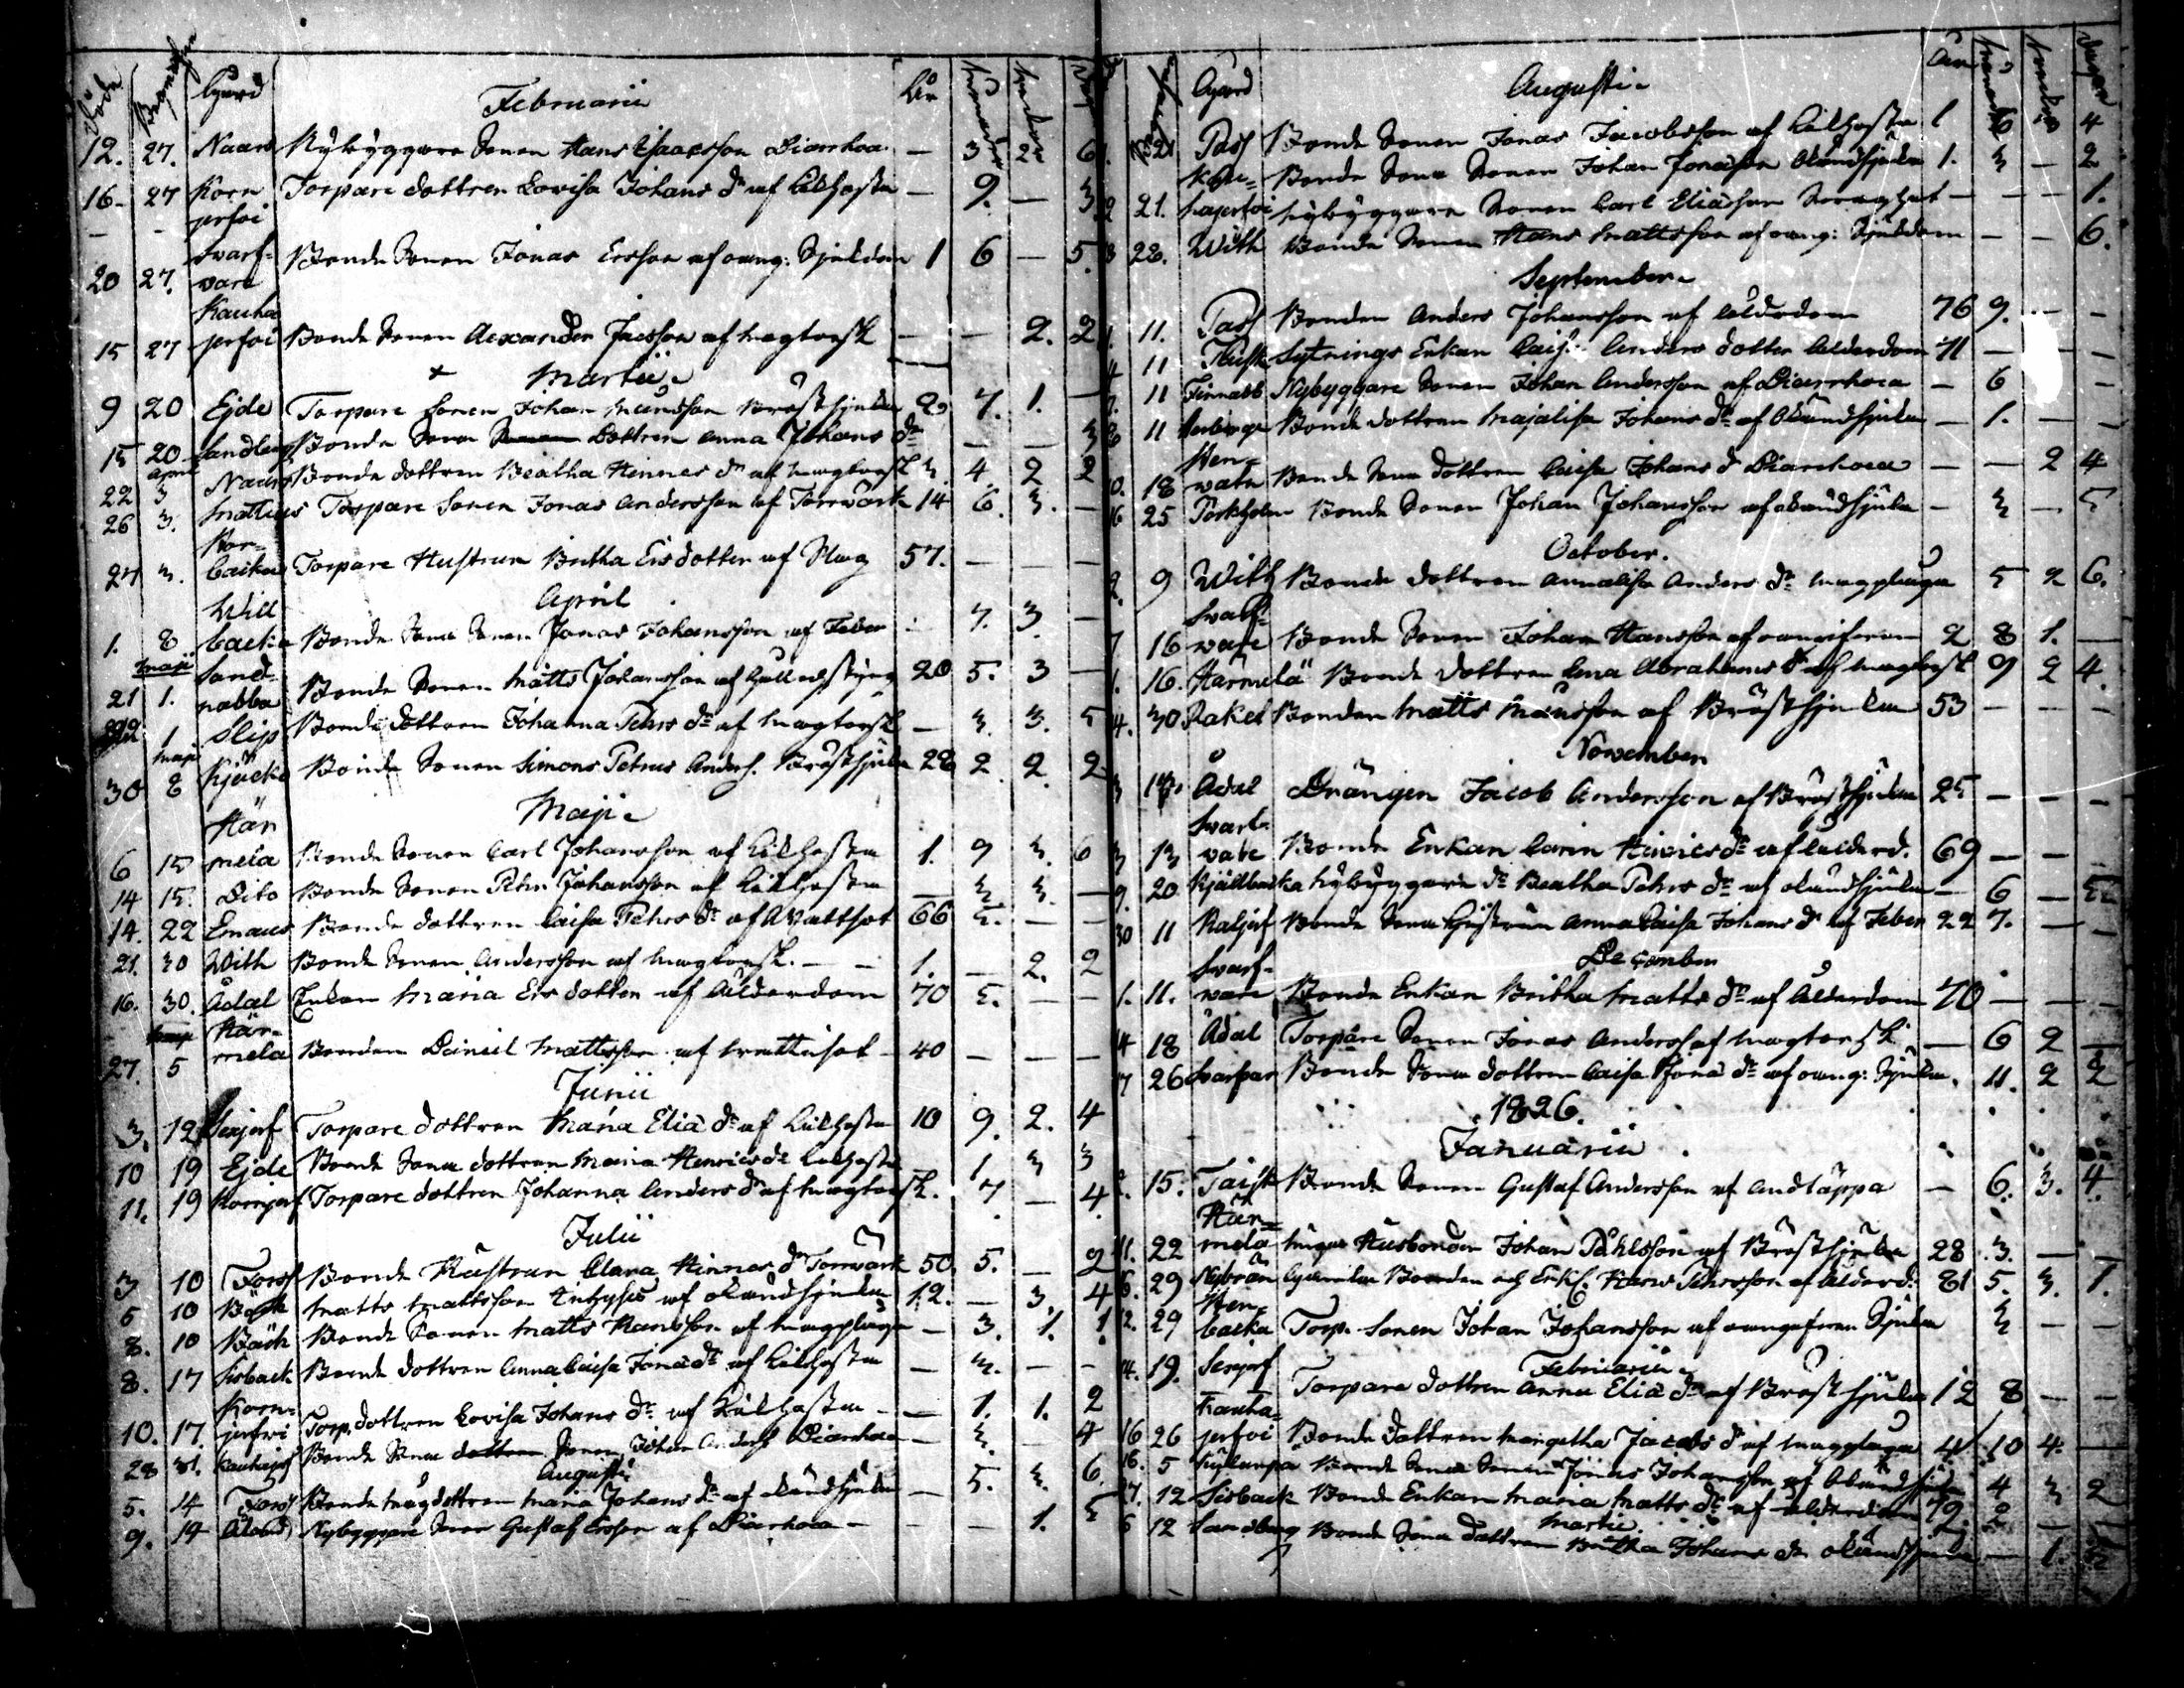 Döde Begrafne Gård Februarii År månader veckor dag
12. 27. Naars Nybyggare Sonen Hans Isaacsson Diarrhoea — 3 2 6
16. 27 Korn Torpare dottren Lovisa Johans dr af Kikhosta — 9. — 3
jerfvi
Svart-
20 27. vare Bonde Sonen Jonas Ersson af oang: Sjukdom 1 6 — 5.
Kauha
15 27 jerfvi Bonde Sonen Alexander Jacsson af magtorsk — — 2. 2
Martii
9 20 Ejde Torpare Sonen Johan Mansson Bröstsjukdm 2. 7. 1. —
15 20 Sandberg Bonde Sona Dottren Anna Johans dr — — 3
april
22 3 Naars Bonde dottren Beatha Hinners dr af magtorsk 3. 4. 2 2
26 3. Mattus Torpare Sonen Jonas Andersson af Torrwärk 14 6. 3. —
Kor-
27 3. backa Torpare Hustrun Britha Ersdotter af Slag 57. — — —
April
Will
1. 8 backa Bonde Sona Sonen Jonas Johansson af Feber — 7. 3 —
maji Sand-
21 1. nabba Bonde Sonen Matts Johansson af Håll och styng 20 5. 3 —
22 1 Slip Bonde dottren Johanna Pehrs dr af magtorsk — 3. 3. 5
maji
30 8 Kjäcko Bonde Sonen Simons Petrus Anders. Bröstsjukd 28 2 2. 2
Maji
Här
6 15 mela Bonde Sonen Carl Johansson af Kikhosta 1. 9 3. 6
14 15. Dito Bonde Sonen Pehr Johansson af Kikhosta — 3. 3. —
14. 22 Emaus Bonde dottren Caisa Pehrs dr af Wattsot 66 5. — —
21. 30 With Bonde Sonen Andersson af magtorsk. — 1. — 2. 2
16. 30. Ådal Enkan Maria Ers dotter af Ålderdom 70 5. — —
Här-
27. 5 mela Bonden Daniel Mattsson af Wattusot 40 — — —
Junii
3. 12 Serjerf Torpare dottren Maria Elia dr af Kikhosta 10 9. 2. 4
10 19 Ejde Bonde Sona dottren Maria Henrics dr Kikhosta 1. 3 3
11. 19 Kornjerf Torpare dottren Johanna Anders dr af magtorsk. 7 — 4.
Julii
3 10 Forss Bonde Hustrun Clara Hinners dr Torrwärk 50 5. — 2
5 10 Bäck Matts Mattsson Inhyses af okändsjukdm 12. — 3. 4
8. 10 Bäck Bonde Sonen Matts Hansson af magplåga — 3. 1. 1.
8. 17 Sisback Bonde dottren Anna Caisa Jona dr af Kikhosta — 3. — —
Korn-
10. 17. jerfvi Torp. dottren Lovisa Johans dr af Kikhosta — 1. 1. 2
28 31. Kauhajerf Bonde Sona Sonen Johan Anders Diarrhoea — 3. — 4
Augusti
5. 14 Forss Bonde Mågdottren Maria Johans dr af okändsjukdm — 5. 3. 6.
9. 14 Nybyggare Sonen Gustaf Ersson af Diarrhoea — — 1. 5
Gård Augusti År månader veckor dagar
21 Pass Bonde Sonen Jonas Jacobsson af Kikhosta 1 4
Bonde Sona Sonen Johan Jonasson Okändsjukdm 1. 3 — 2
21. Lajerfvi Nybyggare Sonen Carl Eliasson — — — 1.
22. With Bonde Sonen Hans Mattsson af oang: Sjukdom — — 6.
September
11. Pass Bonden Anders Johansson af ålderdom 76 9. — —
11 Taisk Sytnings Enkan Caisa Anders dotter Alderdom 71 — —
11 Finnabb Nybyggare Sonen Johan Andersson af Diarrhoea — 6 —
11 Bonde dottren Majalisa Johans dr af Okändsjukdm — 1. — —
Sten-
18 wata Bonde Sona dottren Caisa Johans dr Diarrhoea — — 2 4
25 Porkholm Bonde Sonen Johan Johansson af okändsjukdm — 3 — 5
October.
9 With Bonde dottren Annalisa Anders dr magplåga 5 2 6.
Svart-
16 vare Bonde Sonen Johan Hansson af oangifven 2 8 1. —
16. Härmelä Bonde dottren Lena Abrahams dr af magtorsk 9 2 4.
30 Rakel Bonden Matts Månsson af Bröstsjukdm 53 — — —
November
13. Ådal Drängen Jacob Andersson af Bröstsjukdm 25 — — —
Svart-
13 vare Bonde Enkan Carin Henrics dr af ålderd. 69 — — —
20 Kjällbacka Nybyggare dr Beatha Pehrs dr af okändsjukdm — 6 — 5
30 11 Kaljerf Bonde Sona Hustrun Anna Caisa Johans dr af Feber 22 7. — —
December
Svart-
1. 11. vare Bonde Enkan Britha Matts dr af Ålderdom 70 — — —
14 18 Ådal Torpare Sonen Jonas Anderss af magtorsk — 6 2 —
17 26 Svartvar Bonde Sona dottren Caisa Jona dr af oang: Sjukdm. 11. 2 2
1826.
Januarii.
15. Taisk Bonde Sonen Gustaf Andersson af andtäppa — 6. 3. 4.
Här-
11. 22 mela unga Husbonden Johan Påhlsson af Bröstsjukdm 28 3. —
6. 29 Nybrån Gamla Bonden och Enkl. Hans Pehrsson af ålderd. 81 5. 3. 1.
Sten-
12. 29 backa Torp. Sonen Johan Johansson af oangifven Sjukdm 3 — —
Februarii
14. 19. Serjerf Torpare dottren Anna Elia dr af Bröstsjukdm 12 8 — —
Kauha-
16 26 jerfvi Bonde dottren Margetha Jacobs dr af magplåga 4 10 4. —
16. 5 Bonde Sona Sonen Jonas Johansson af Okändsjukd 4 3 2
17. 12 Sisback Bonde Enkan Maria Matts dr af ålderdom 79. 2 —
Martii
6 12 Sandberg Bonde Sona dottren Britha Johans dr okändsjukdm — 1.